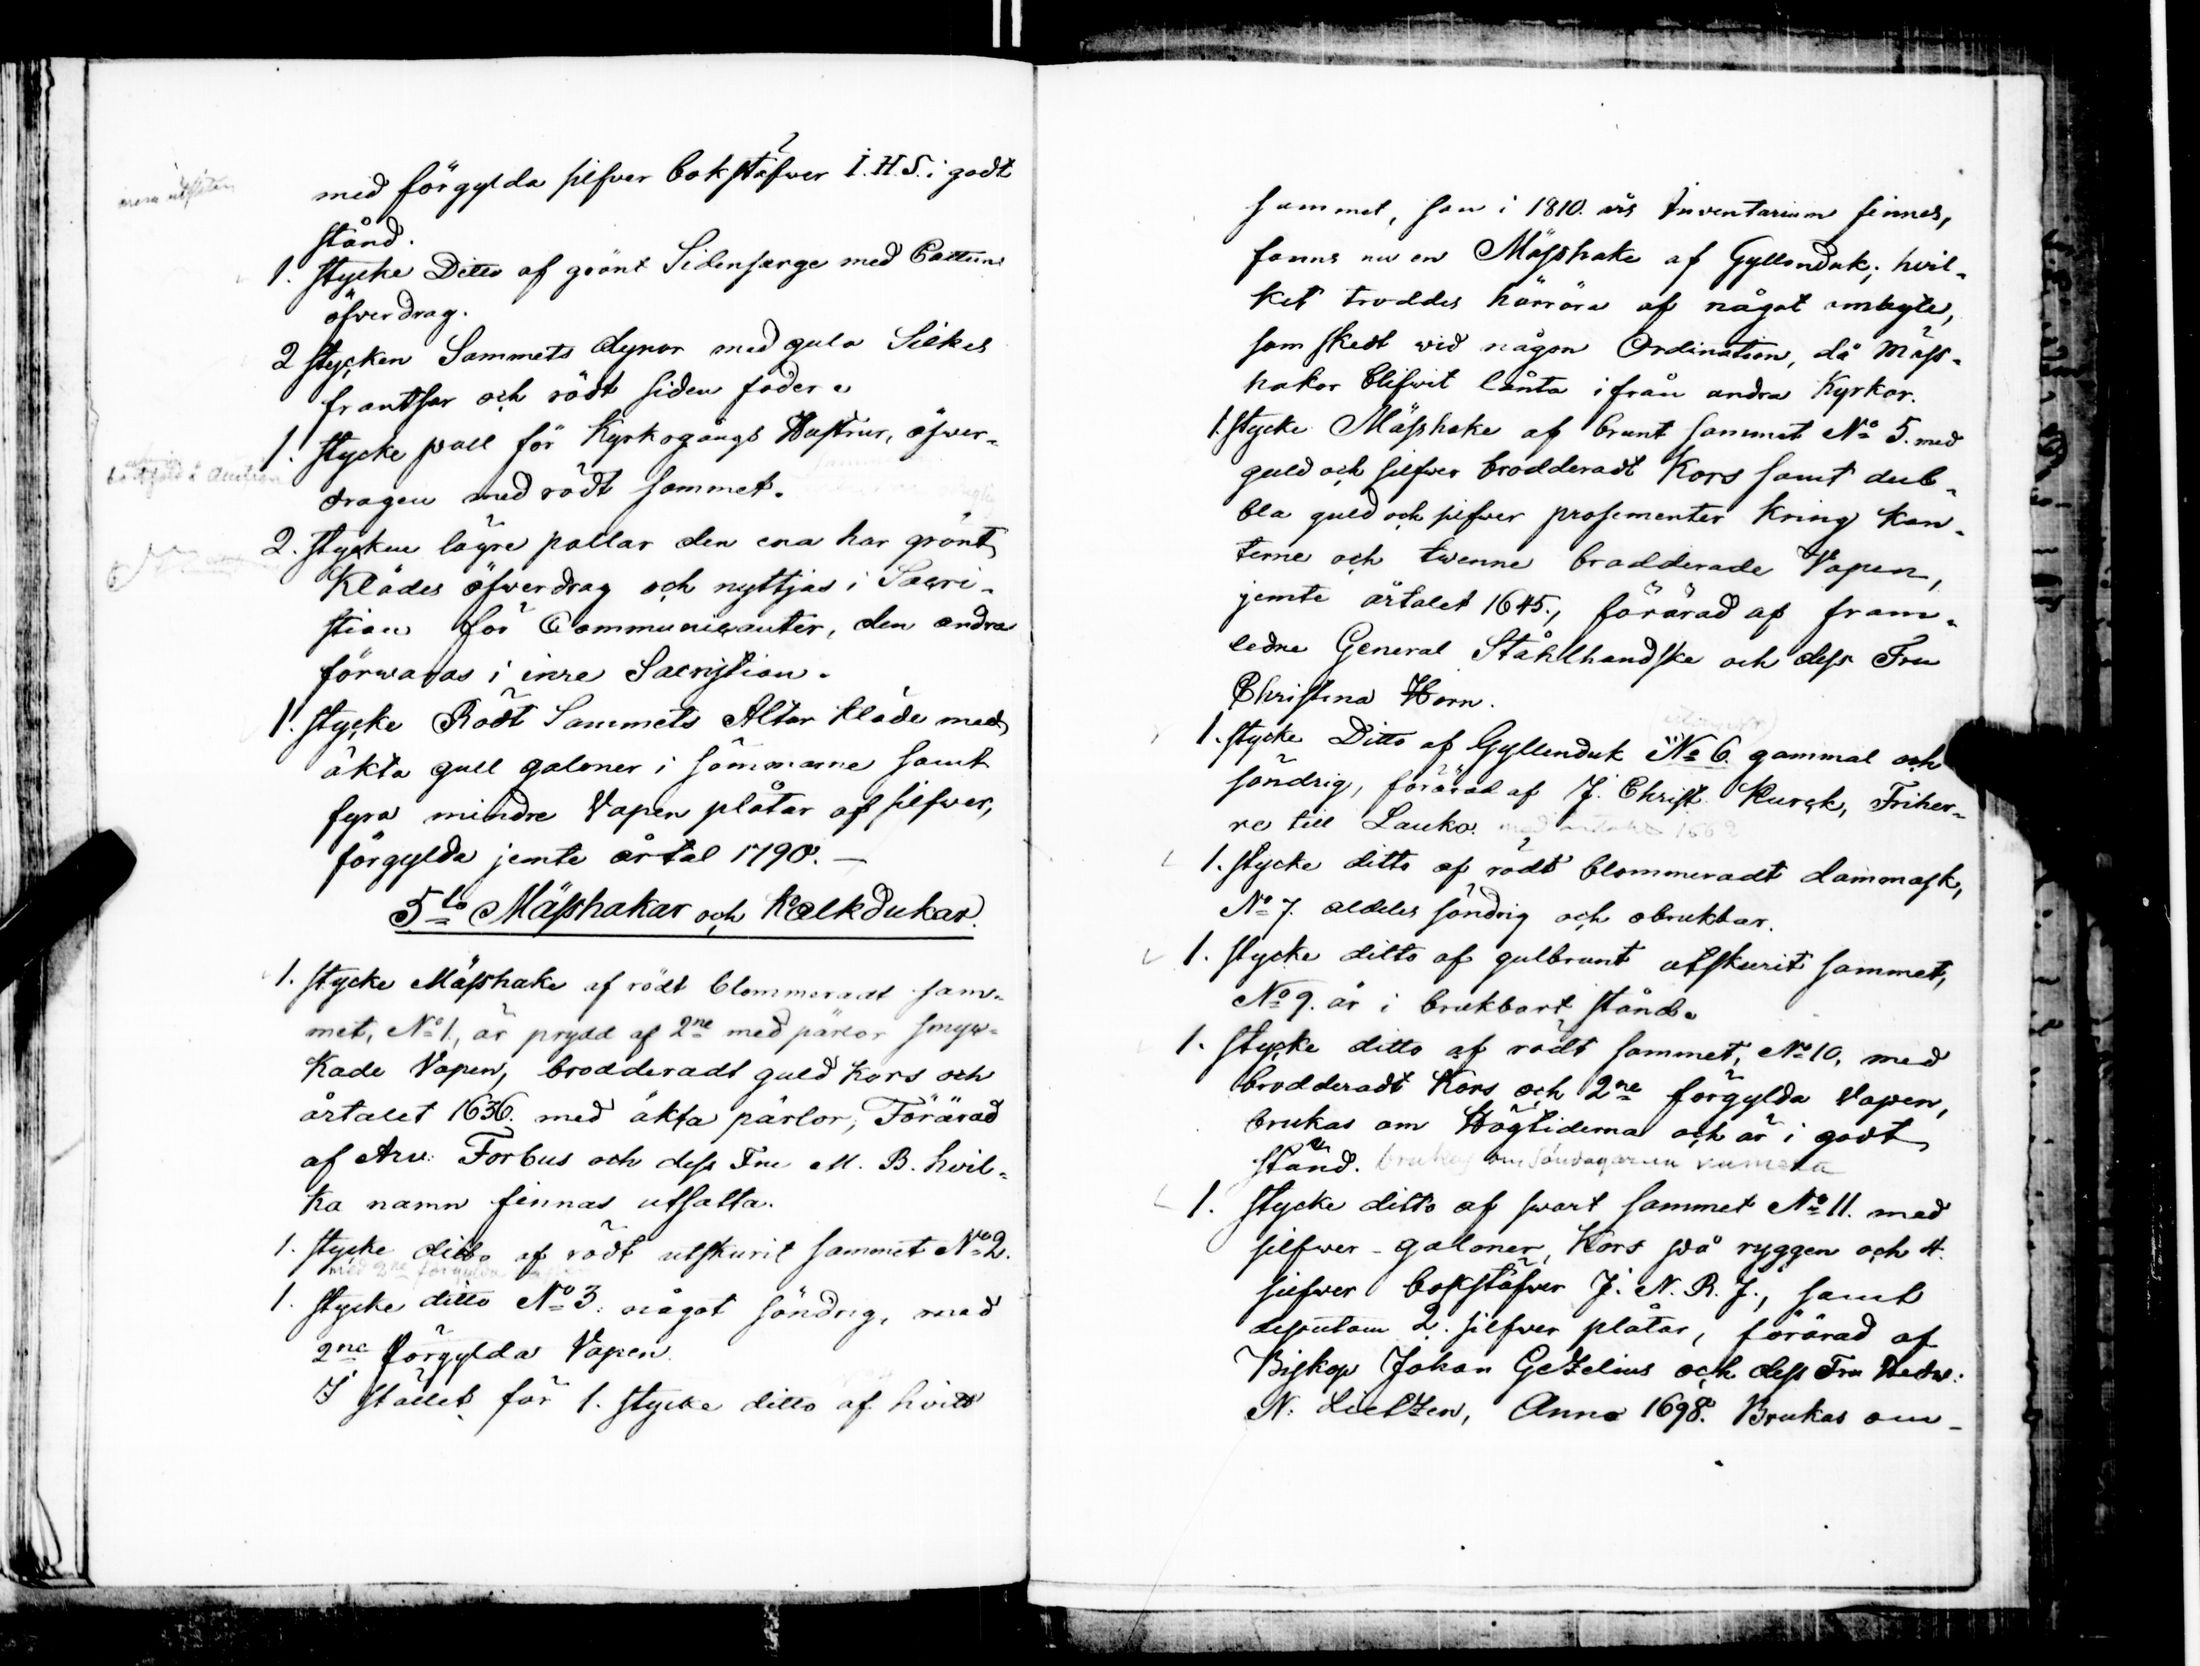 med förgylda silfver bokstäfver I.H.S. i godt
stånd.
1. stycke Ditto af grönt Sidensarge med Cattuns
öfverdrag.
2 stycken Sammets dynor med gula Silkes
frantsar och rödt siden foder.
1. stycke pall för Kyrkogångs Hustrur, öfver-
dragen med rödt sammet.
2. stycken lägre pallar den ena har grönt
Klädes öfverdrag och nyttjas i Sacri-
stian för Communicanter, den andra
förwaras i inre Sacristian.
1. stycke Rödt Sammets Altar kläde med
äkta gull galoner i sömmarne samt
fyra mindre Vapen plåtar af silfver,
förgylda jemte årtal 1790. —
5to Mässhakar och Kalkdukar.
1. stycke Mässhake af rödt blommeradt sam-
met, No 1., är prydd af 2ne med pärlor smyc-
kade Vapen, brodderadt guld kors och
årtalet 1636. med äkta pärlor, Förärad
af Arv: Forbus och dess Fru M. B. hvil-
ka namn finnas utsatta.
1. stycke ditto af rödt utskurit sammet No 2.
med 2ne förgylda
1. stycke ditto No 3. något söndrig, med
2ne förgylda Vapen.
I stället för 1. stycke ditto af hvitt
sammet, som i 1810. års Inventarium finnes,
fanns nu en Mässhake af Gyllenduk; hvil-
ket troddes härröra af något ombyte,
som skedt wid någon Ordination, då Mäss-
hakar blifwit lånta ifrån andra Kyrkor.
1. stycke Mässhake af brunt sammet No 5. med
guld och silfwer brodderadt Kors samt dub-
bla guld och silfver prosementer kring kan-
terne och twenne brodderade Vapen,
jemte årtalet 1645., förärad af fram-
ledne General Stålhandske och dess Fru
Christina Horn.
1. stycke Ditto af Gyllenduk No 6. gammal och
söndrig, förärad af J. Christ. Kurck, Friher-
re till Lauko. 1662
1. stycke ditto af rödt blommeradt dammask,
No 7. aldeles söndrig och obrukbar.
1. stycke ditto af gulbrunt utskurit sammet,
No 9. är i brukbart stånd.
1. stycke ditto af rödt sammet, No 10, med
brodderadt Kors och 2ne förgylda Vapen,
brukas om Högtiderna och är i godt
stånd. brukas om söndagarna
1. stycke ditto af swart sammet No 11. med
silfwer-galoner, Kors på ryggen och 4.
silfver bokstäfver J. N. R. J., samt
dessutom 2. silfver plåtar, förärad af
Biskop Johan Gezelius och dess Fru Hedw:
N. Lietzen, Anno 1698. Brukas om-